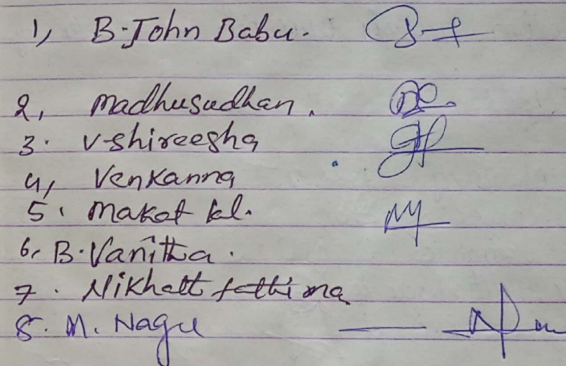 1, B. John Babu.
2, Madhusudhan.
3. V-shireesha
4, Venkanna
5. Makat kl.
6, B. Vanitha.
7. Nikhatt fathima
8. M. Nagu